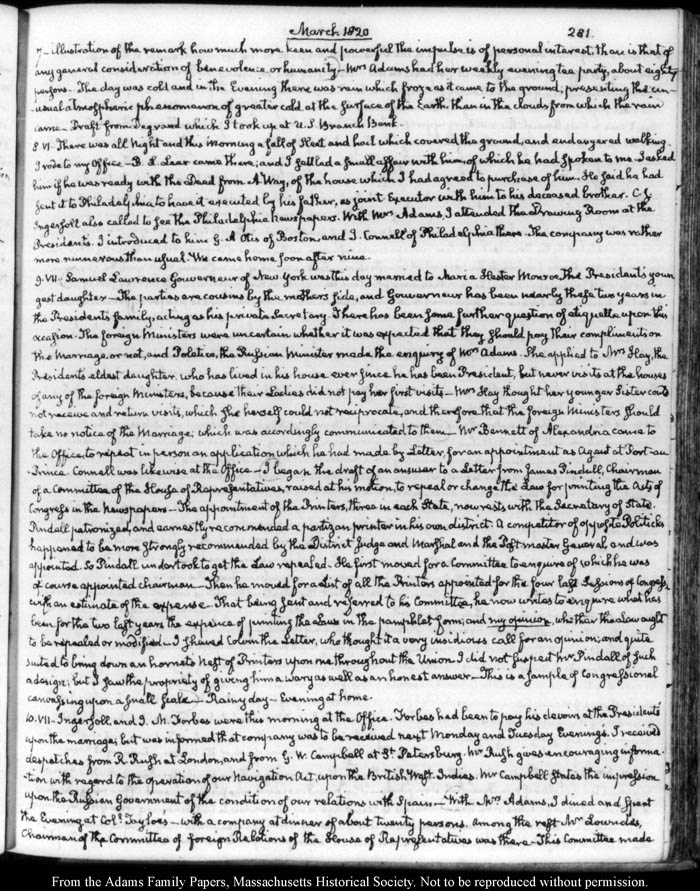 March 1820
281
7— illustration of the remark how much more keen and powerful the impulse is of personal interest, than is that of
any general consideration of benevolence or humanity— Mrs Adams had her weekly evening tea party, about eighty
persons— The day was cold and in the Evening there was rain which froze as it came to the ground, presenting the un-
-usual atmospheric phenomenon of greater cold at the surface of the Earth than in the clouds from which the rain
came— Draft from Degrand which I took up at U.S. Branch Bank.
8. VI. There was all Night and this Morning a fall of Sleet and hail which covered the ground, and endangered walking.
I rode to my Office— B. L. Lear came there; and I settled a small affair with him, of which he had spoken to me. I asked
him if he was ready with the Deed from A. Way, of the house which I had agreed to purchase of him. He said he had
sent it to Philadelphia to have it executed by his father, as joint Executor with him to his deceased brother. C. J.
Ingersoll also called to see the Philadelphia Newspapers. With Mrs Adams, I attended the Drawing Room at the
Presidents. I introduced to him G. A. Otis of Boston and J. Connell of Philadelphia there. The company was rather
more numerous than usual. We came home soon after nine.
9. VII. Samuel Lawrence Gouverneur of New York was this day married to Maria Hester Monroe The President's youn
gest daughter— The parties are cousins by the mothers side, and Gouverneur has been nearly these two years in
the President's family, acting as his private Secretary. There has been some further question of etiquette upon this
occasion. The foreign Ministers were uncertain whether it was expected that they should pay their compliments on
the Marriage, or not, and Poletica, the Russian Minister made the enquiry of Mrs Adams. She applied to Mrs Hay, the
Presidents eldest daughter, who has lived in his house ever since he has been President, but never visits at the houses
of any of the foreign Ministers, because their Ladies did not pay her first visits— Mrs Hay thought her younger Sister could
not receive and return visits, which she herself could not reciprocate, and therefore that the foreign Ministers should
take no notice of the Marriage; which was accordingly communicated to them— Mr Bennett of Alexandria came to
the Office, to repeat in person an application which he had made by Letter, for an appointment as Agent at Port-au-
-Prince. Connell was likewise at the Office— I began the draft of an answer to a Letter from James Pindall, Chairman
of a Committee of the House of Representatives, raised at his motion, to repeal or change the Law for printing the Acts of
Congress in the Newspapers— The appointment of the Printers, three in each State, now rests with the Secretary of State.
Pindall patronized, and earnestly recommended a partizan printer in his own district. A competitor of opposite Politicks
happened to be more strongly recommended by the District Judge and Marshal and the Postmaster General, and was
appointed. So Pindall undertook to get the Law repealed. He first moved for a Committee to enquire of which he was
of course appointed chairman— Then he moved for a List of all the Printers appointed for the four last Sessions of Congress,
with an estimate of the expense— That being sent and referred to his Committee, he now writes to enquire what has
been for the two last years the expence of printing the Laws in the pamphlet form; and my opinion, whether the Law ought
to be repealed or modified— I shewed Colvin the Letter, who thought it a very insidious call for an opinion; and quite
suited to bring down an hornets Nest of Printers upon me throughout the Union. I did not suspect Mr Pindall of such
a design; but I saw the propriety of giving him a wary as well as an honest answer— This is a sample of Congressional
canvassing upon a small scale— Rainy day— Evening at home.
10. VII— Ingersoll and J. M. Forbes were this morning at the Office. Forbes had been to pay his devoirs at the Presidents
upon the marriage; but was informed that company was to be received next Monday and Tuesday Evenings. I received
despatches from R. Rush at London, and from G. W. Campbell at St Petersburg. Mr Rush gives encouraging informa-
-tion with regard to the operation of our Navigation Act, upon the British West-Indies. Mr Campbell states the impression
upon the Russian Government of the condition of our relations with Spain— With Mrs Adams, I dined and spent
the Evening at Coll. Tayloe's— with a company at dinner of about twenty persons. Among the rest Mr Lowndes,
Chairman of the Committee of foreign Relations of the House of Representatives was there— This Committee made
From the Adams Family Papers, Massachusetts Historical Society. Not to be reproduced without permission.